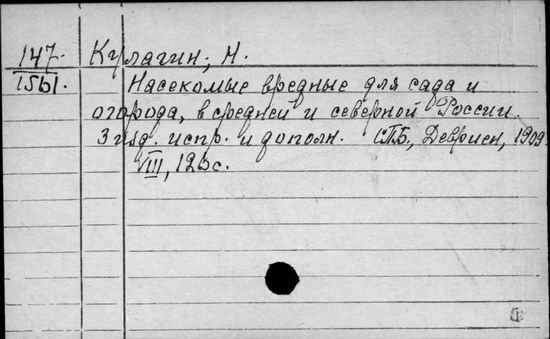 147. Кулагин, Н.
1561. Насекомые вредные для сада и
огорода, в средней и северной России.
3 изд. испр. и дополн. СПБ., Девриен, 1909.
VIII, с.